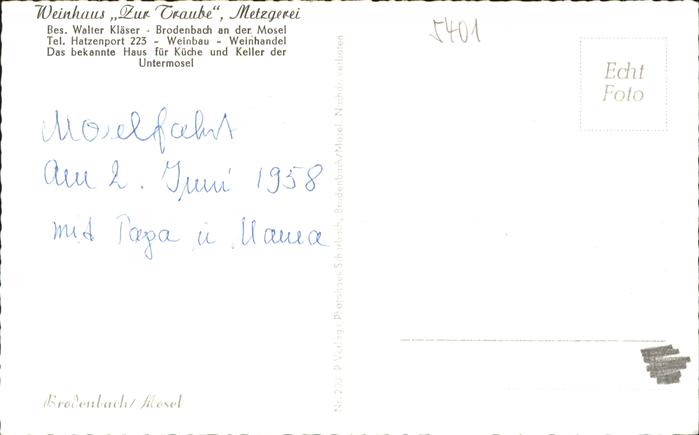 Weinhaus „Zur Traube“, Metzgerei
Bes. Walter Kläser - Brodenbach an der Mosel
Tel. Hatzenport 223 - Weinbau - Weinhandel
Das bekannte Haus für Küche und Keller der
Untermosel
5401
Echt
Foto
Moselfahrt
am 2. Juni 1958
mit Papa u Mama
Brodenbach/Mosel
Verlag: Photohaus Brodenbach/Mosel. Nachdr. verboten